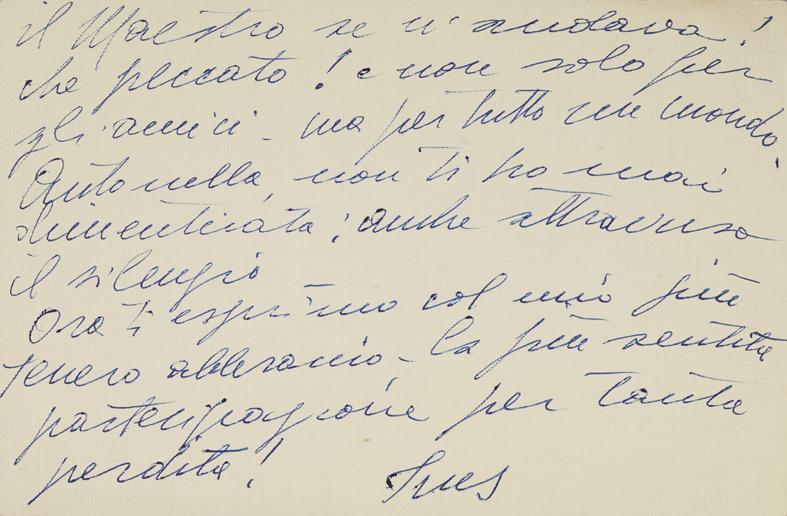 il Maestro se n'andava!
che peccato! e non solo per
gli amici - ma per tutto un mondo.
Antonella, non ti ho mai
dimenticata; anche attraverso
il silenzio
Ora ti esprimo col mio più
tenero abbraccio - la più sentita
partecipazione per tanta
perdita! Ines